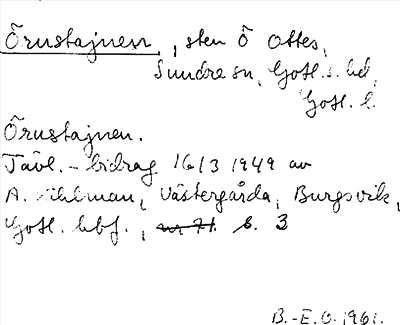 Örustajnen, sten Ö Ottes,
Sundre sn, Gotl. s. hd,
Gotl. l.
Örustajnen.
Tävl.-bidrag 16/3 1949 av
A. Uhlman, Västergårda, Burgsvik,
Gotl. hbf., nr 71 s. 3
B.-E.O. 1961.